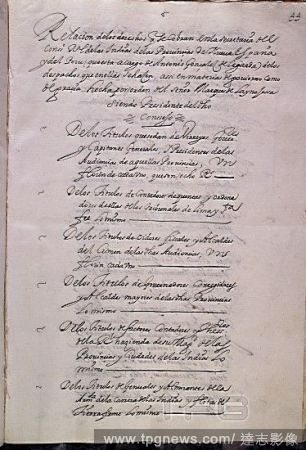 Relacion delos derechos q̃ se Cobran en la secretaria del
Consº Rl de las Indias de las Provincias de Nueva España
y del Peru, questa a cargo de Antonio Gonzalez de Legarda, de los
despachos que en ellas se hacen, assi en materias de govierno como
de gracia hecha por orden del señor Marques de
siendo Presidente del dho
Consejo
De los titulos que se dan de Virreyes, Gover
y Capitanes Generales, y Presidentes de las
Audiencias de aquellas Provincias, Un
florin de cada Uno, que son ocho Rs
De los titulos de Contadores de quentas y
de ellas de los tribunales de Lima y
lo mismo
De los titulos de Oidores fiscales y Alcaldes
del Crimen de las dhas Audiencias, Un
florin cada Uno
De los titulos de Governadores Corregidores
y Alcaldes mayores de las dhas Provincias
lo mismo
De los titulos de factores Contadores y
de la Rl hazienda de su Magd de las
Provincias y Ciudades de las Indias lo
mismo
De los titulos de Generales y Almirantes de la
de la carrera de las Indias y flota de
tierra firme lo mismo
www.tpgnews.com/ 達志影像